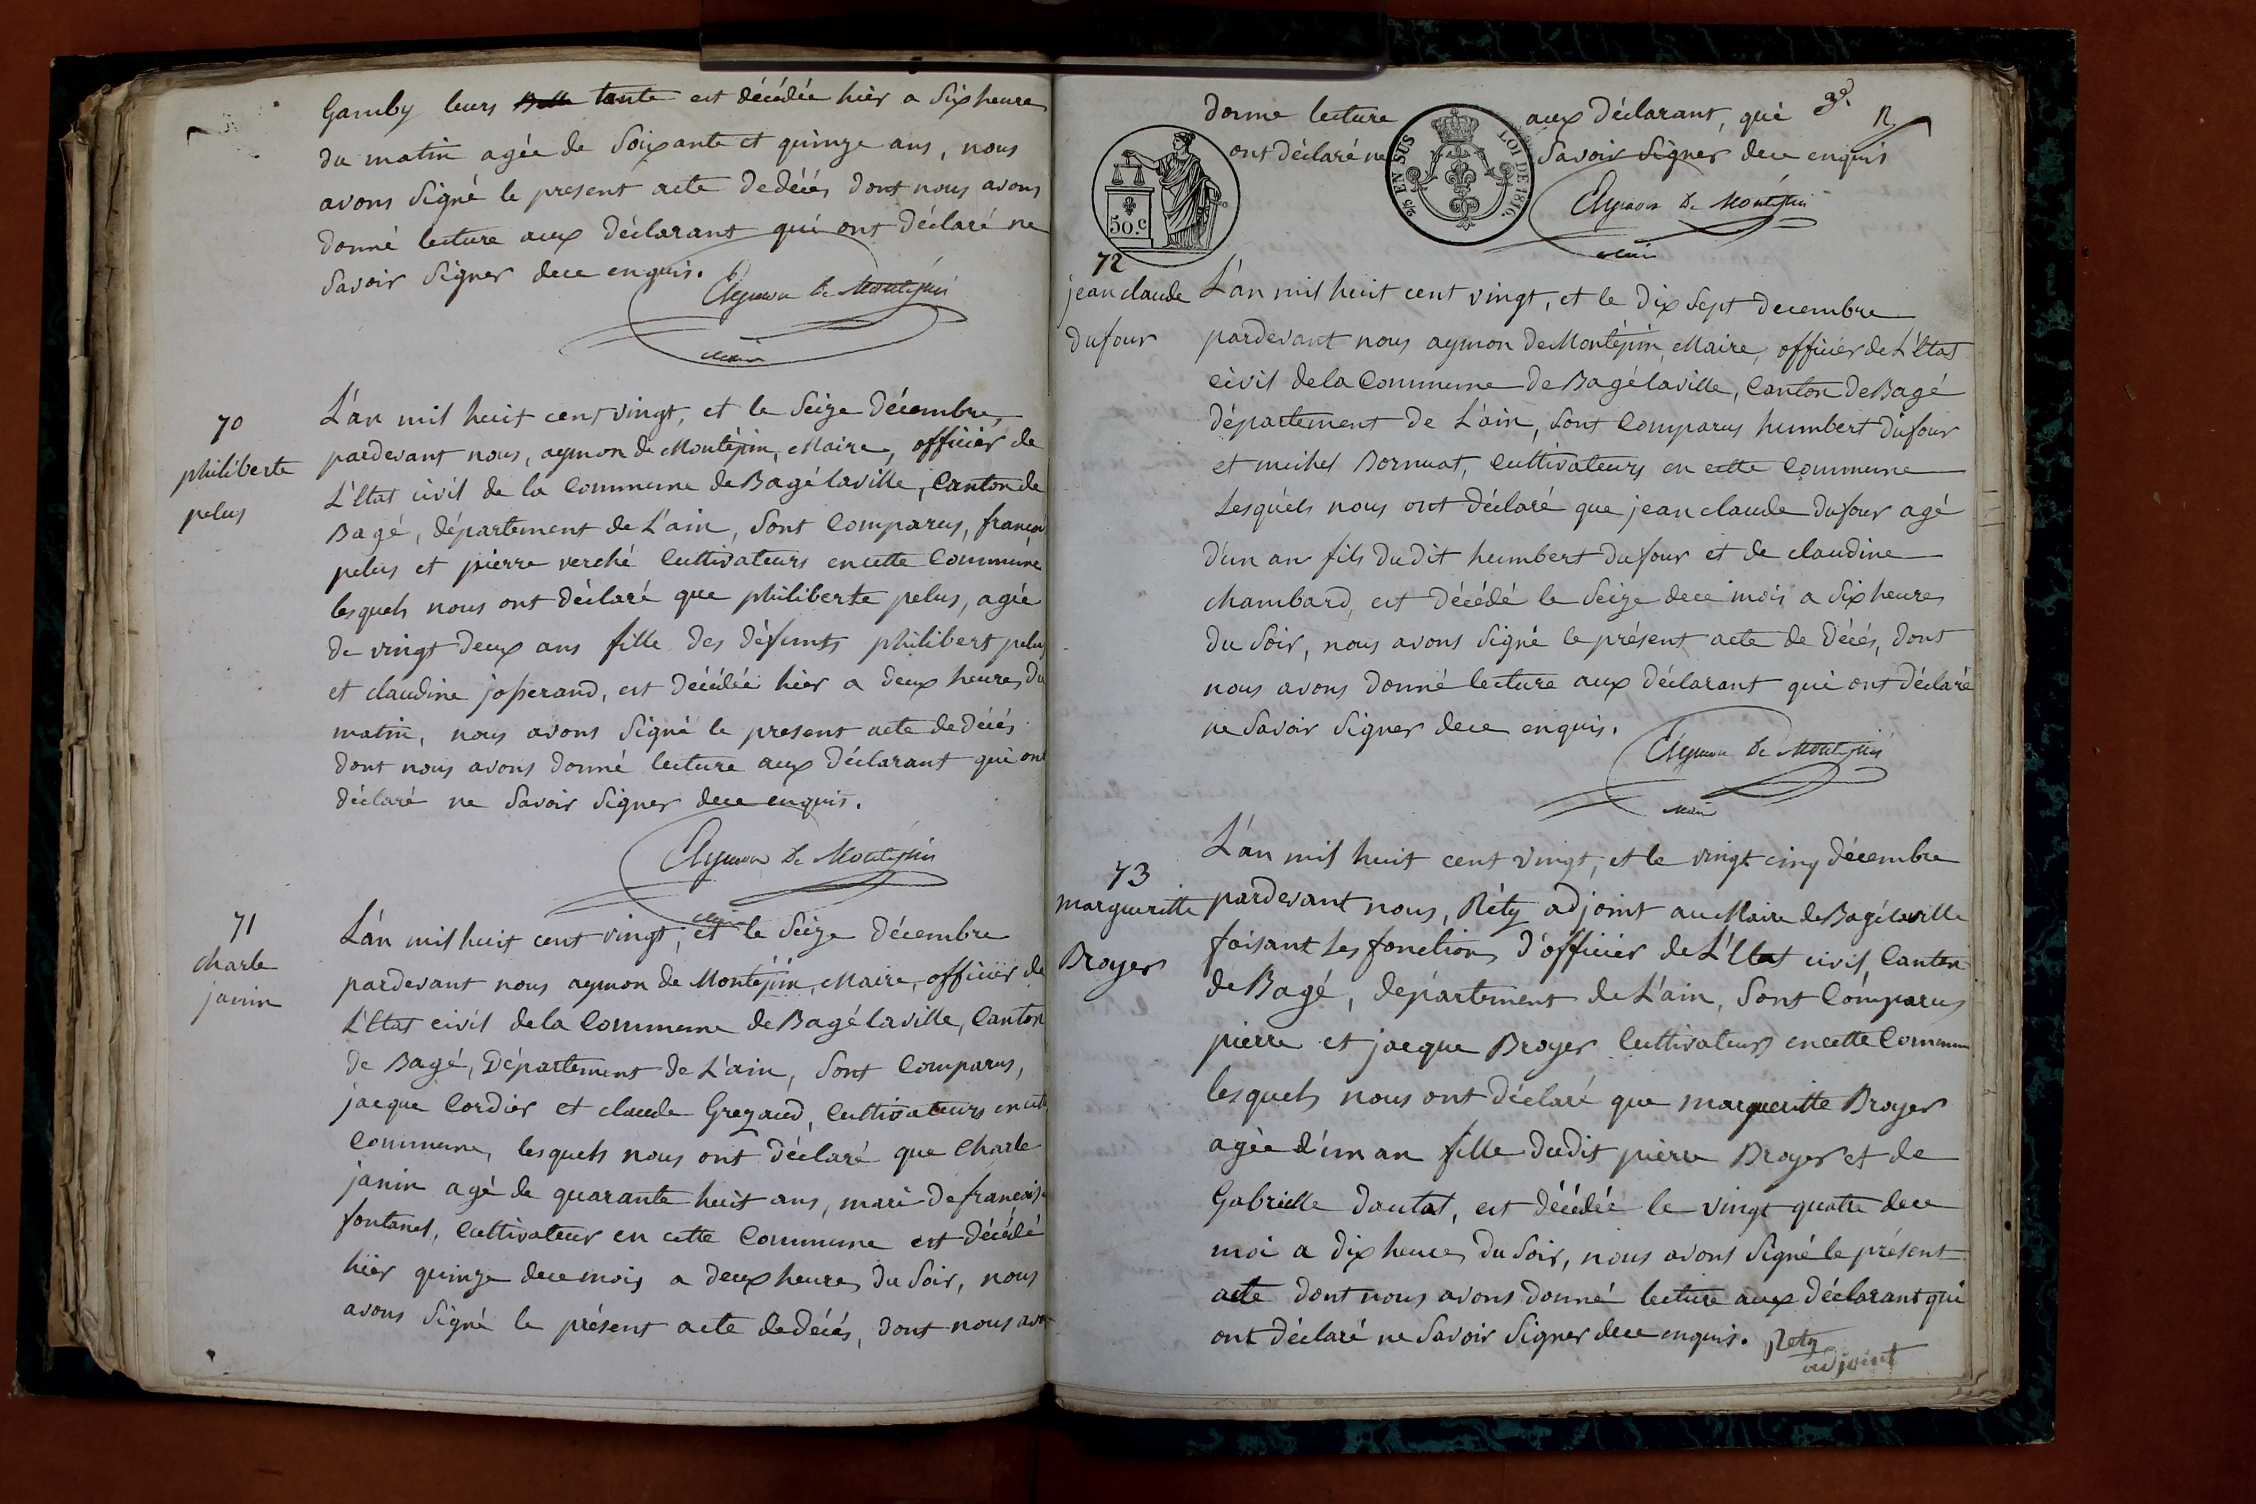 Gamby leurs Belle tante est décédée hièr a Six heures
du matin agée de Soixante et quinze ans, nous
avons Signé le present acte de décés dont nous avons
donné lecture aux déclarant qui ont déclaré ne
Savoir Signer de ce enquis.
Aymon De Montépin
Maire
70
philiberte
pelus
L'an mil huit cent vingt, et le Seize décembre,
pardevant nous, aymon de Montépin, Maire, officièr de
L'Etat civil de la Commune de Bagé laville, Canton de
Bagé, département de L'ain, Sont Comparus, françoi
pelus et pierre verché Cultivateurs en cette Commune
lesquels nous ont déclaré que philiberte pelus, agée
de vingt deux ans fille des défunts philibert pelus
et claudine josserand, est décédée hièr a deux heures du
matin, nous avons Signé le present acte de décés
dont nous avons donné lecture aux déclarant qui ont
déclaré ne Savoir Signer de ce enquis.
Aymon De Montépin
Maire
71
Charle
janin
L'an mil huit cent vingt, et le Seize décembre
pardevant nous aymon de Montépin, Maire, officièr de
L'Etat civil de la Commune de Bagé laville, Canton
de Bagé, Département de L'ain, Sont Comparus,
jacque Cordièr et claude Grezaud, Cultivateurs en cette
Commune, lesquels nous ont déclaré que Charle
janin agé de quarante huit ans, mari de françoise
fontanel, Cultivateur en cette Commune est décédé
hièr quinze de ce mois a deux heures du Soir, nous
avons Signé le présent acte de décés, dont nous avons
donne lecture aux déclarant, qui
ont déclaré ne Savoir Signer de ce enquis
3e. R
50.c
2/5 EN SUS
LOI DE 1816.
Aymon De Montépin
Maire
72
jean claude
dufour
L'an mil huit cent vingt, et le dix Sept decembre
pardevant nous aymon de Montépin, Maire, officièr de L'Etat
civil de la Commune de Bagé laville, Canton de Bagé
département de L'ain, Sont Comparus humbert dufour
et michel Bornuat, Cultivateurs en cette Commune
Lesquels nous ont déclaré que jean claude dufour agé
d'un an fils du dit humbert dufour et de claudine
chambard, est décédé le Seize de ce mois a Six heures
du Soir, nous avons Signé le présent acte de décés, dont
nous avons donné lecture aux déclarant qui ont déclaré
ne Savoir Signer de ce enquis.
Aymon De Montépin
Maire
73
margueritte
Broyer
L'an mil huit cent vingt, et le vingt cinq décembre
pardevant nous, Réty adjoint au Maire de Bagé laville
faisant les fonctions d'officièr de L'Etat civil, Canton
de Bagé, département de L'ain, Sont Comparus
pierre et jacque Broyer Cultivateurs en cette Commune
lesquels nous ont déclaré que margueritte Broyer
agée d'un an fille dudit pierre Broyer et de
Gabrielle dautat, est décédée le vingt quatre de ce
moi a dix heures du Soir, nous avons Signé le présent
acte dont nous avons donné lecture aux déclarant qui
ont déclaré ne Savoir Signer de ce enquis. Rety
adjoint